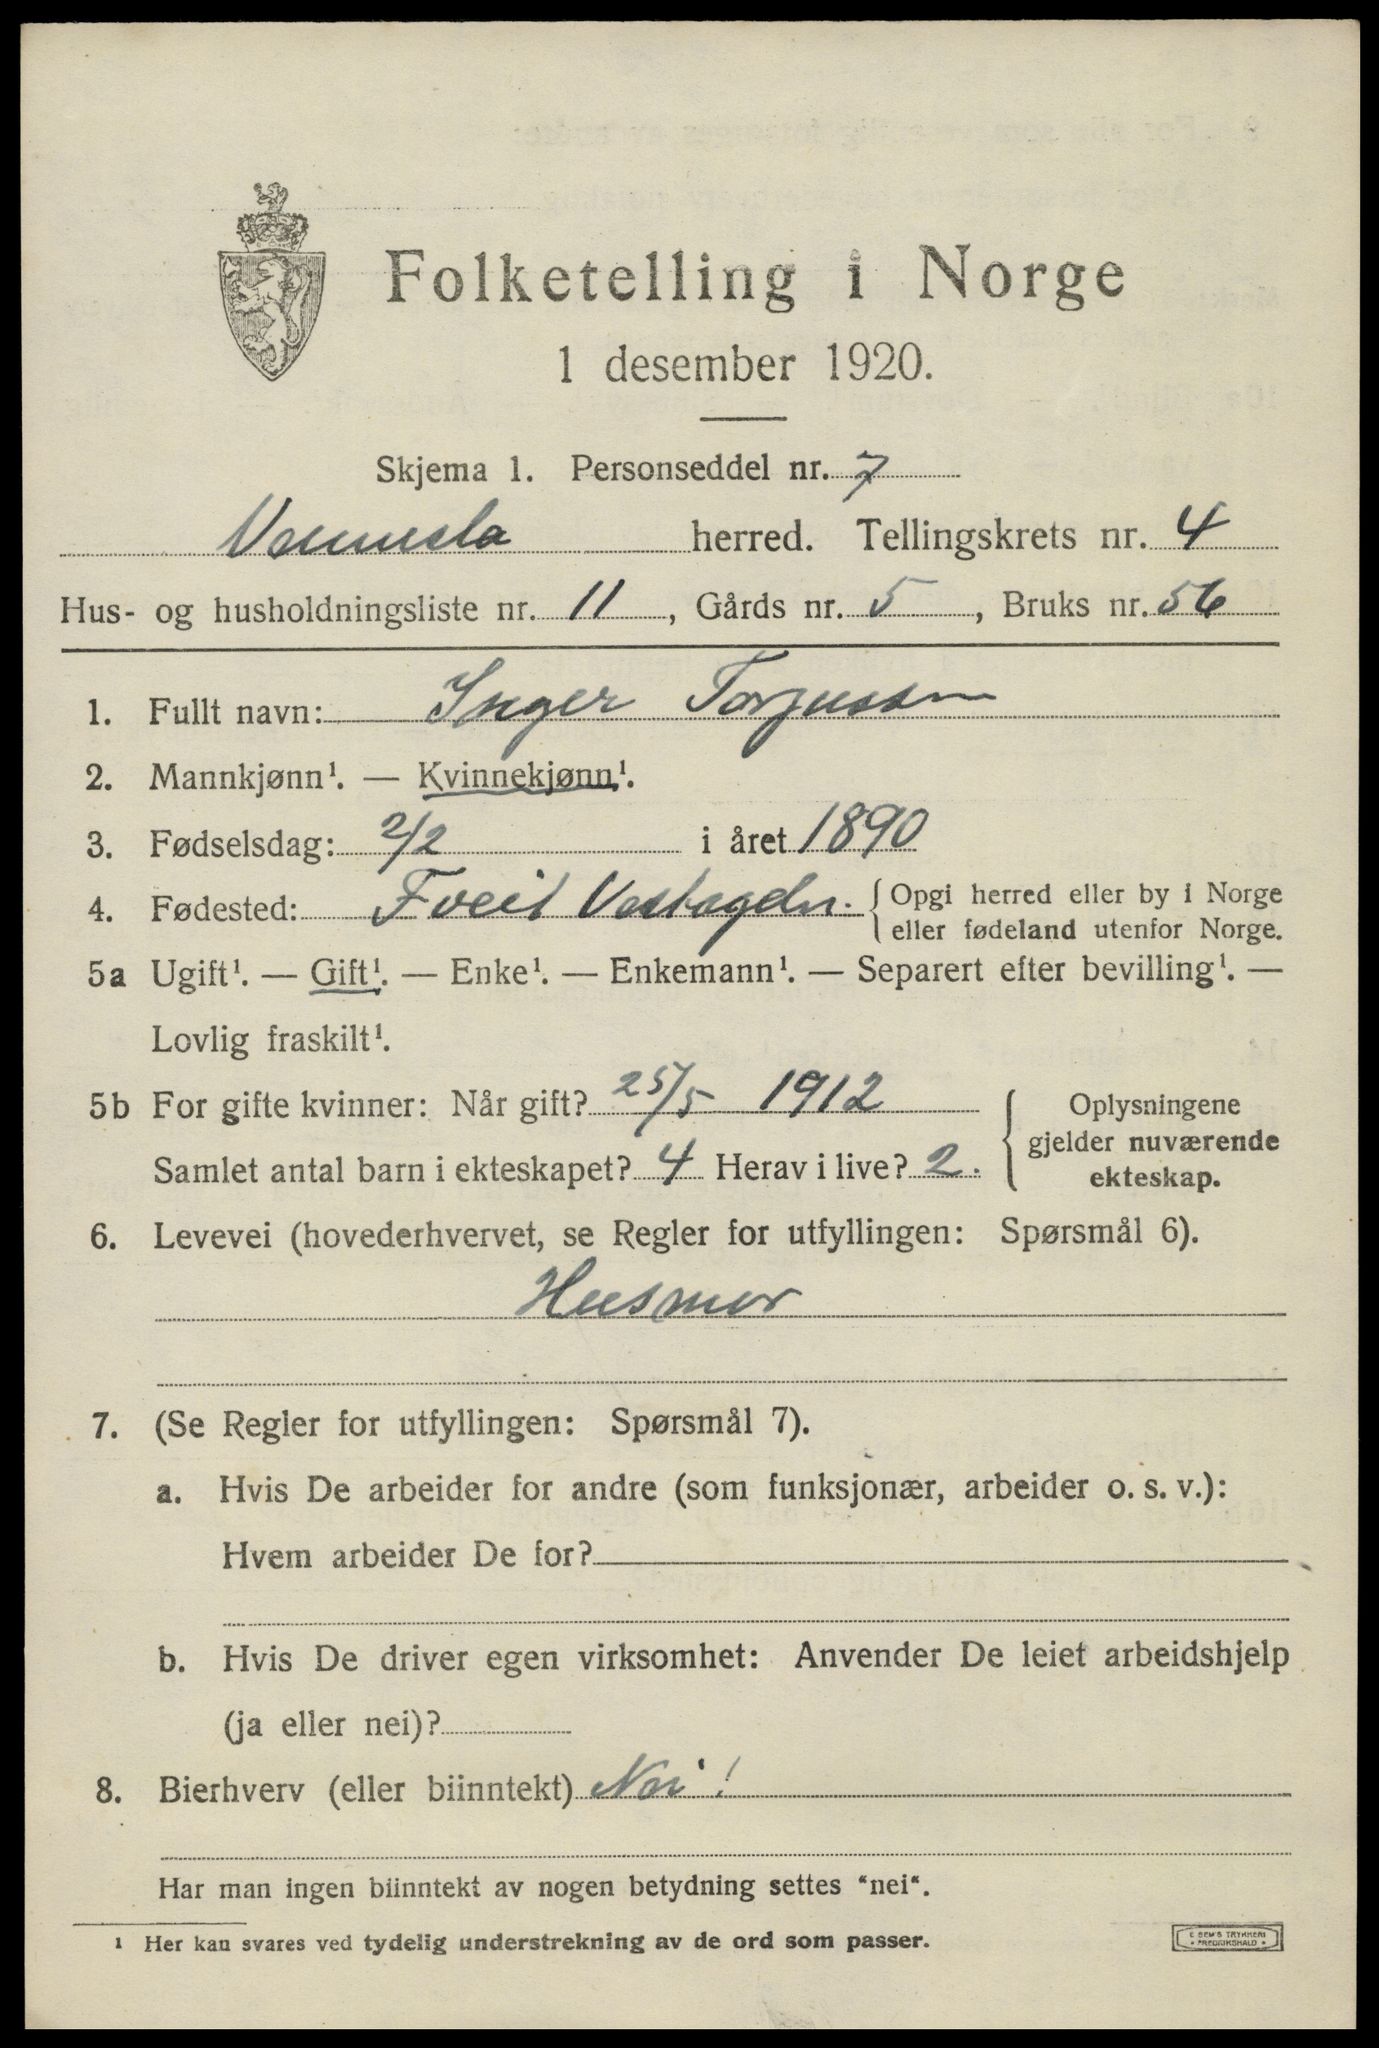 Folketelling i Norge
1 desember 1920.
Skjema 1. Personseddel nr. 7
Vennesla herred. Tellingskrets nr. 4
Hus- og husholdningsliste nr. 11, Gårds nr. 5, Bruks nr. 56
1. Fullt navn: Inger Torjussen
2. Mannkjønn¹. — Kvinnekjønn¹.
3. Fødselsdag: 2/2 i året 1890
4. Fødested: Tveit Vestagder. Opgi herred eller by i Norge
eller fødeland utenfor Norge.
5a Ugift¹. — Gift¹. — Enke¹. — Enkemann¹. — Separert efter bevilling¹. —
Lovlig fraskilt¹.
5b For gifte kvinner: Når gift? 25/5 1912
Samlet antal barn i ekteskapet? 4 Herav i live? 2.
Oplysningene
gjelder nuværende
ekteskap.
6. Levevei (hovederhvervet, se Regler for utfyllingen: Spørsmål 6).
Husmor
7. (Se Regler for utfyllingen: Spørsmål 7).
a. Hvis De arbeider for andre (som funksjonær, arbeider o. s. v.):
Hvem arbeider De for?
b. Hvis De driver egen virksomhet: Anvender De leiet arbeidshjelp
(ja eller nei)?
8. Bierhverv (eller biinntekt) Nei!
Har man ingen biinntekt av nogen betydning settes "nei".
¹ Her kan svares ved tydelig understrekning av de ord som passer.
E SEM'S TRYKKERI
FREDRIKSHALD